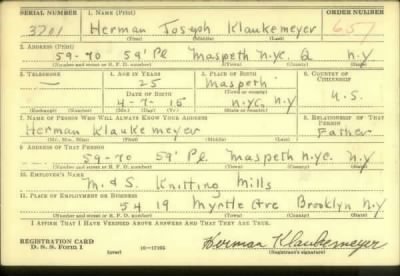 SERIAL NUMBER 1. NAME (Print) ORDER NUMBER
3701 Herman Joseph Klaukemeyer 657
(First) (Middle) (Last)
2. ADDRESS (Print)
59-70 59' Pl Maspeth N.Y.C. Q N.Y
(Number and street or R. F. D. number) (Town) (County) (State)
3. TELEPHONE 4. AGE IN YEARS 5. PLACE OF BIRTH 6. COUNTRY OF CITIZENSHIP
— 25 Maspeth
DATE OF BIRTH (Town or county)
4-7-15 N.Y.C. N.Y U.S.
(Exchange) (Number) (Mo.) (Day) (Yr.) (State or country)
7. NAME OF PERSON WHO WILL ALWAYS KNOW YOUR ADDRESS 8. RELATIONSHIP OF THAT PERSON
Herman Klaukemeyer Father
(Mr., Mrs., Miss) (First) (Middle) (Last)
9. ADDRESS OF THAT PERSON
59-70 59' Pl. Maspeth N.Y.C. N.Y
(Number and street or R. F. D. number) (Town) (County) (State)
10. EMPLOYER'S NAME
M. & S. Knitting Mills
11. PLACE OF EMPLOYMENT OR BUSINESS
54 19 Myrtle Ave Brooklyn N.Y
(Number and street or R. F. D. number) (Town) (County) (State)
I AFFIRM THAT I HAVE VERIFIED ABOVE ANSWERS AND THAT THEY ARE TRUE.
REGISTRATION CARD Herman Klaukemeyer
D. S. S. Form 1 (over) 16—17105 (Registrant's signature)